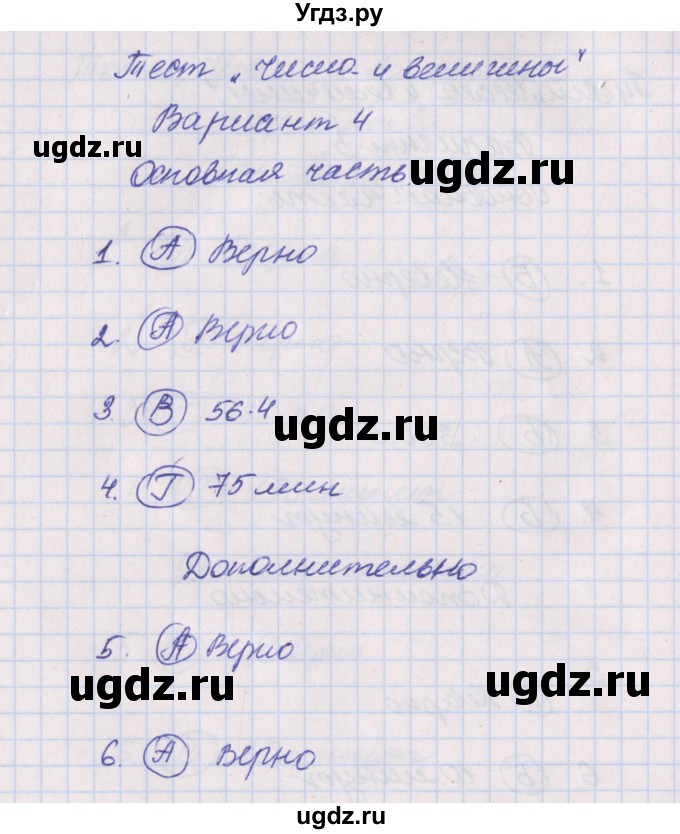 Угдз.ру
Тест „Числа и величины"
Вариант 4
ugdz.ru
Основная часть
ugdz.ru
1. А Верно
2. А Верно
3. В 56·4
ugdz.ru
4. Г 75 мин
Дополнительно
5. А Верно
ugdz.ru
ugdz.ru
6. А Верно
ugdz.ru